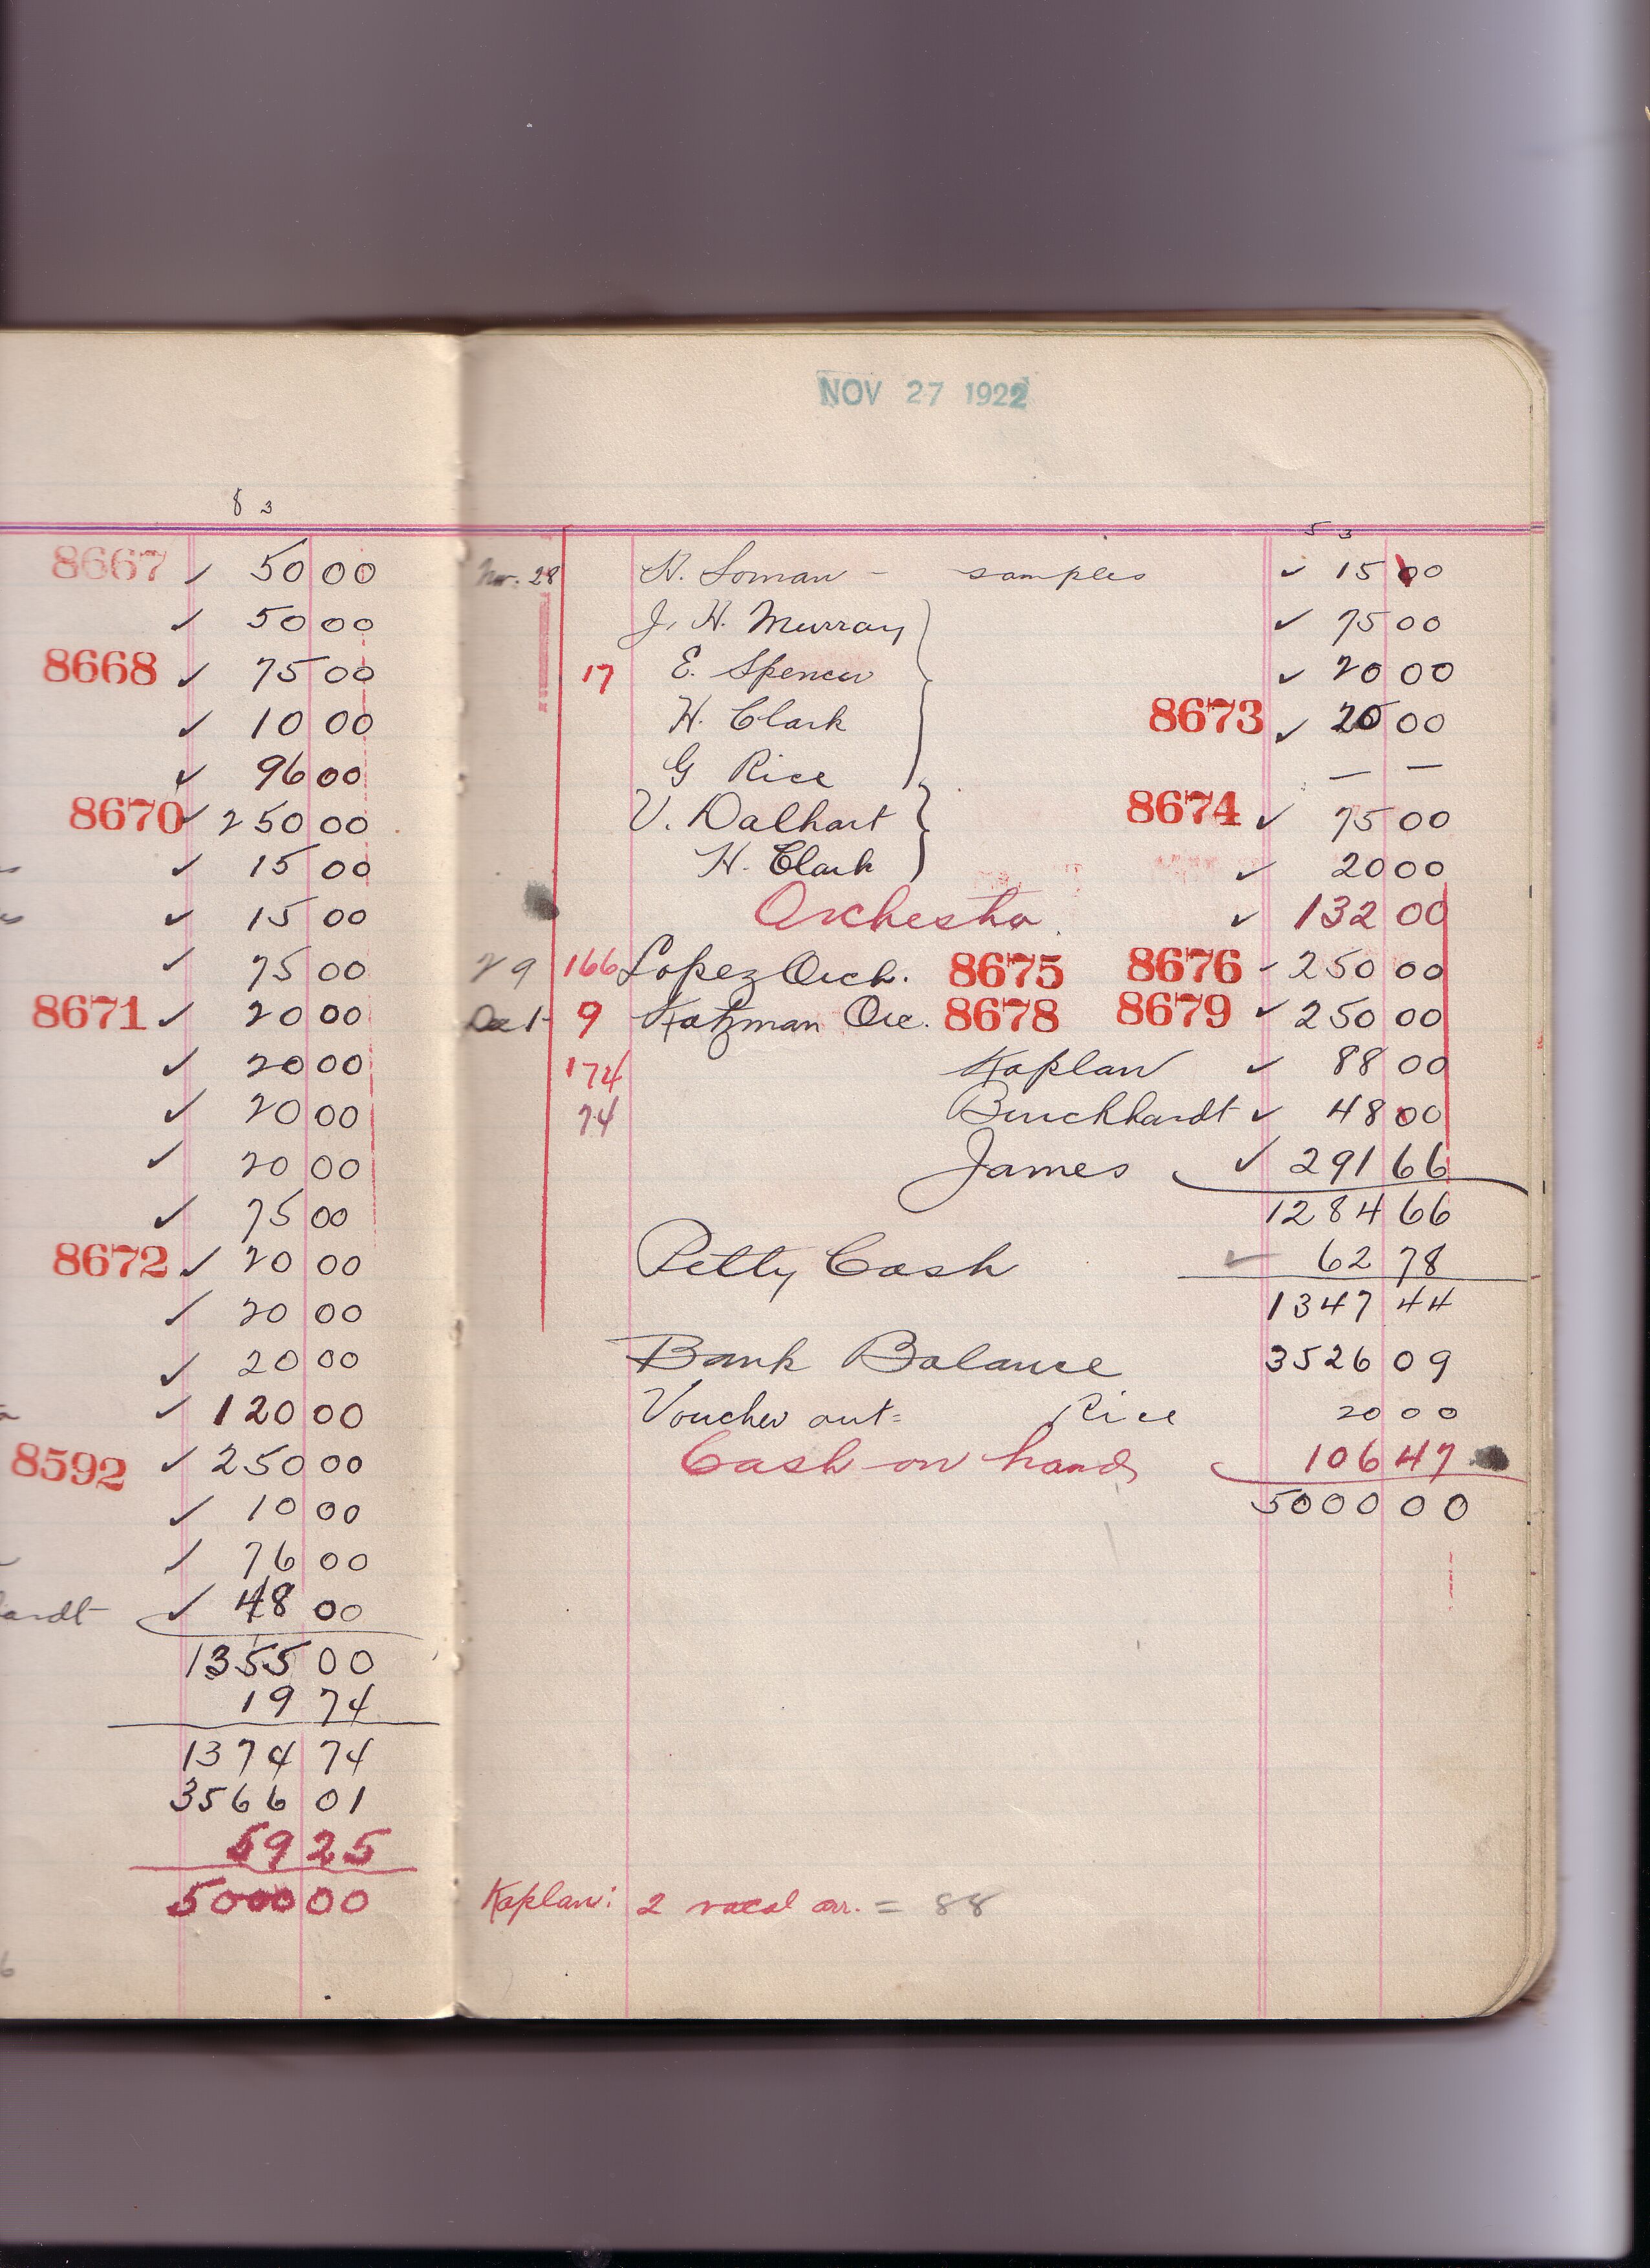 8 3
8667 ✓ 50 00
✓ 50 00
8668 ✓ 75 00
✓ 10 00
✓ 96 00
8670 ✓ 250 00
✓ 15 00
✓ 15 00
✓ 75 00
8671 ✓ 20 00
✓ 20 00
✓ 20 00
✓ 20 00
✓ 75 00
8672 ✓ 20 00
✓ 20 00
✓ 20 00
✓ 120 00
8592 ✓ 250 00
✓ 10 00
✓ 76 00
ardt ✓ 48 00
1355 00
19 74
1374 74
3566 01
59 25
5000 00
NOV 27 1922
5 3
Nov. 28 H. Loman - samples ✓ 15 00
J. H. Murray ✓ 75 00
17 E. Spencer ✓ 20 00
H. Clark 8673 ✓ 20 00
G Rice — —
V. Dalhart 8674 ✓ 75 00
H. Clark ✓ 20 00
Orchestra ✓ 132 00
29 166 Lopez Orch. 8675 8676 ✓ 250 00
Dec 1 9 Katzman Orc. 8678 8679 ✓ 250 00
174 Kaplan ✓ 88 00
74 Burchhardt ✓ 48 00
James ✓ 291 66
1284 66
Petty Cash ✓ 62 78
1347 44
Bank Balance 3526 09
Voucher out= Rice 20 00
Cash on hand 106 47
5000 00
Kaplan: 2 vocal arr. = 88